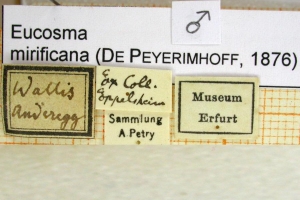 ♂
Eucosma
mirificana (DE PEYERIMHOFF, 1876)
Wallis
Anderegg
Ex Coll.
Eppelsheim
Sammlung
A. Petry
Museum
Erfurt